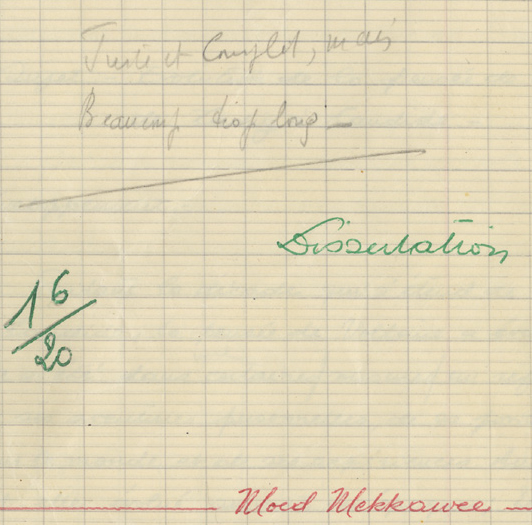 Juste et Complet, mais
Beaucoup trop long —
Dissertation
16/20
Moed Mekkawee